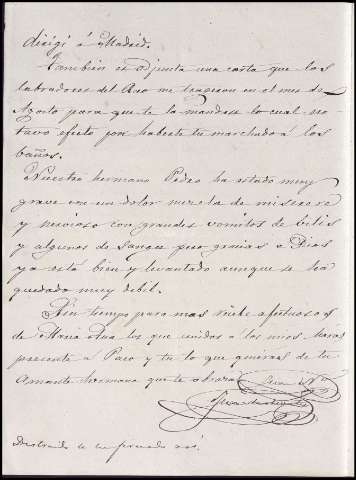 dirigí á Madrid.
Tambien es adjunta una carta que los
labradores del Rio me trageron en el mes de
Agosto para que te la mandase lo cual no
tuvo efecto por haberte tu marchado á los
baños.
Nuestro hermano Pedro ha estado muy
grave con un dolor mezcla de miserere
y nervioso con grandes vomitos de bilis
y algunos de sangre pero gracias a Dios
ya está bien y levantado aunque se ha
quedado muy debil.
Sin tiempo para mas recibe afectuosos
de Maria Ana los que unidos á los mios haras
presente á Paco y tu lo que quieras de tu
amante hermano que te abraza
he firmado asi.